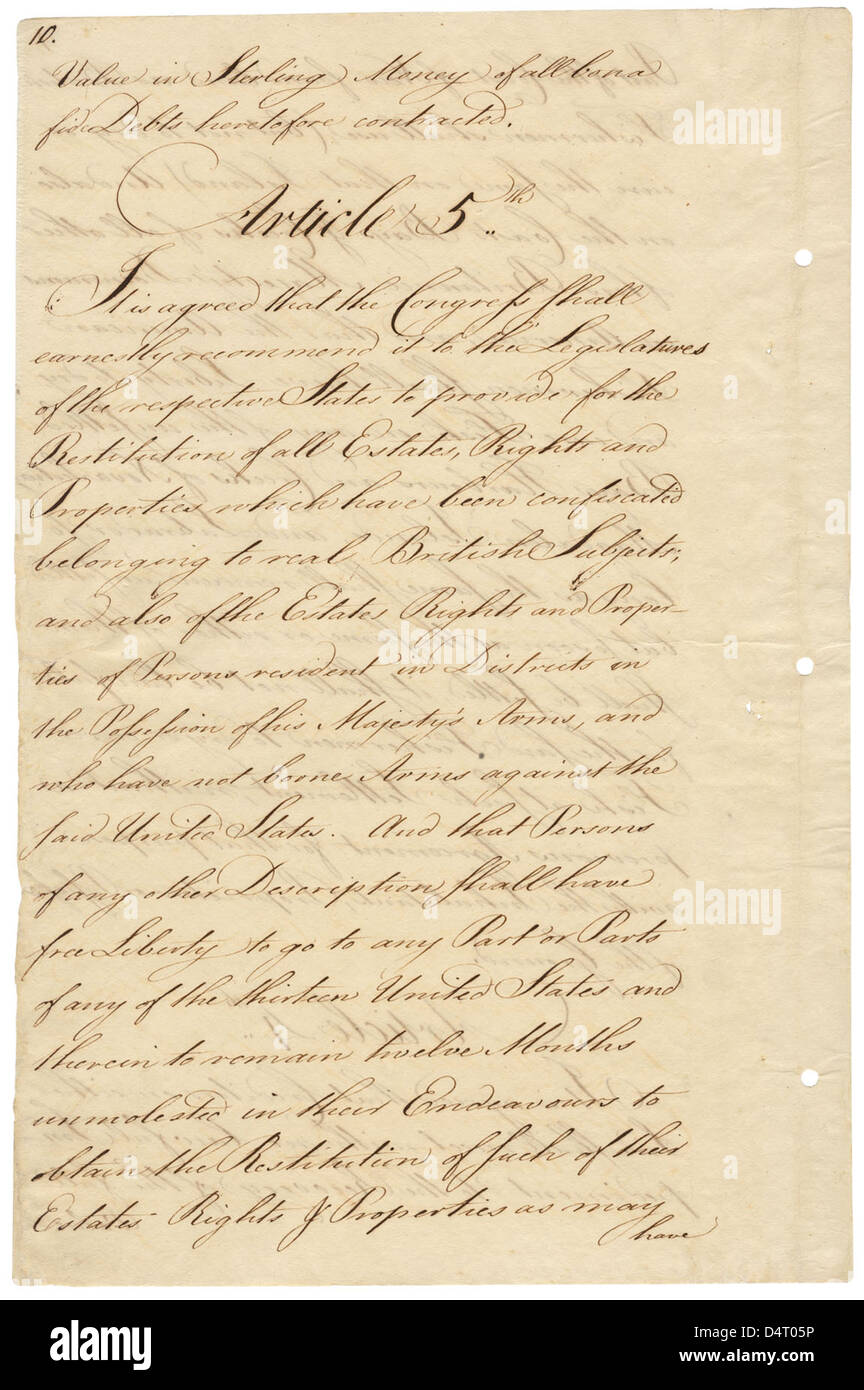 10.
Value in Sterling Money of all bona
fide Debts heretofore contracted.
Article 5th
It is agreed that the Congress shall
earnestly recommend it to the Legislatures
of the respective States to provide for the
Restitution of all Estates, Rights and
Properties which have been confiscated
belonging to real British Subjects;
and also of the Estates Rights and Proper-
ties of Persons resident in Districts in
the Possession of his Majesty's Arms, and
who have not borne Arms against the
said United States. And that Persons
of any other Description shall have
free Liberty to go to any Part or Parts
of any of the thirteen United States and
therein to remain twelve Months
unmolested in their Endeavours to
obtain the Restitution of such of their
Estates Rights & Properties as may
have
alamy
alamy
alamy
alamy
Image ID: D4T05P
www.alamy.com